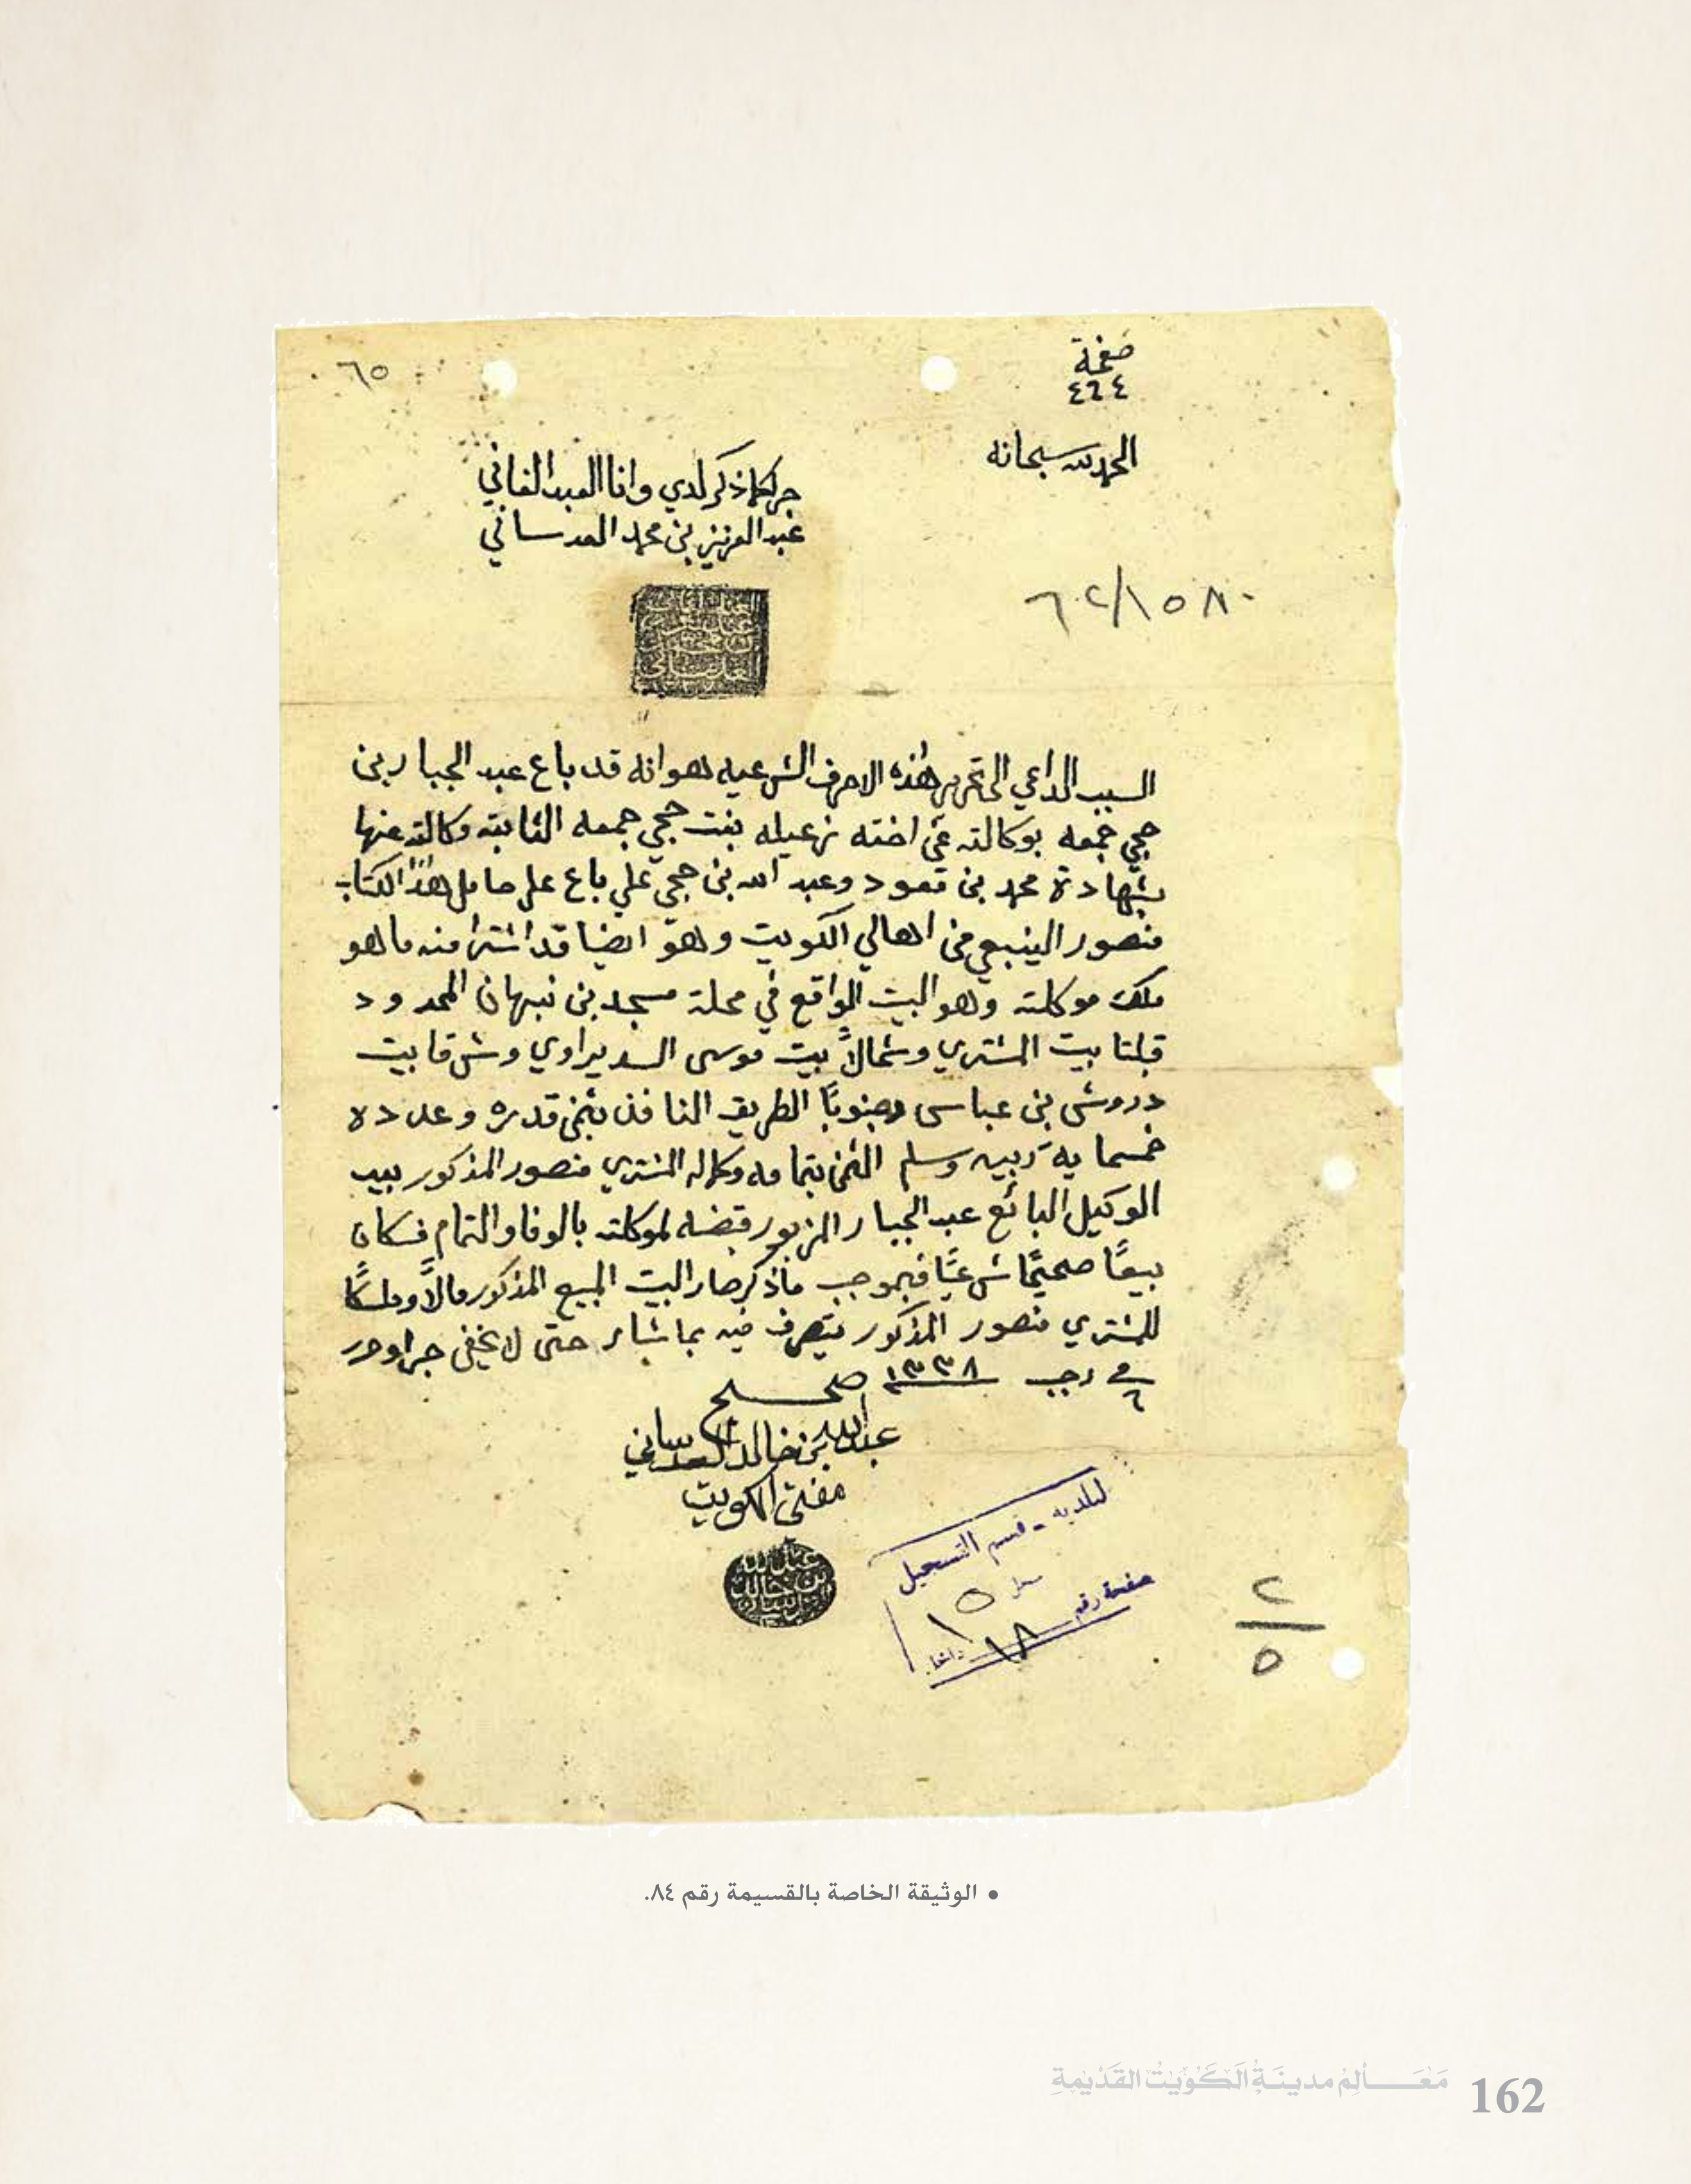 صفحة
٤٦٤
٦٥
الحمد لله سبحانه
جرى كما ذكر لدي وانا العبد الفاني
عبد العزيز بن محمد العدساني
٦٢/١٥٨٠
السبب الداعي الى تحرير هذه الاحرف الشرعيه هو انه قد باع عبد الجبار بن
حجي جمعه بوكالته عن اخته زعيله بنت حجي جمعه الثابته وكالته عنها
بشهادة محمد بن قعود وعبد الله بن حجي علي باع على حامل هذا الكتاب
منصور الينبعي من اهالي الكويت وهو ايضا قد اشترا منه ما هو
ملك موكلته وهو البيت الواقع في محلة مسجد بن نبهان المحدود
قبلتا بيت المشتري وشمالاً بيت موسى السديراوي وشرقا بيت
دروش بن عباس وجنوباً الطريق النافذ بثمن قدره وعدده
خمسمايه ربيه وسلم الثمن بتمامه وكماله المشتري منصور المذكور بيد
الوكيل البائع عبد الجبار المزبور قبضه لموكلته بالوفا والتمام فكان
بيعًا صحيحًا شرعيًا فبموجب ما ذكر صار البيت المبيع المذكور مالاً وملكًا
للمشتري منصور المذكور يتصرف فيه بما شاء حتى لا يخفى جرا وحرر
في ٦ رجب ١٣٣٨
صح
عبدالله بن خالد العدساني
مفتي الكويت
عبدالله بن خالد
البلديه - قسم التسجيل
سجل ١٥
صفحة رقم ١٨
٢
٥
• الوثيقة الخاصة بالقسيمة رقم ٨٤.
مَعَالِمُ مدينَةِ الكُوَيْتْ القَدْيمةِ
162